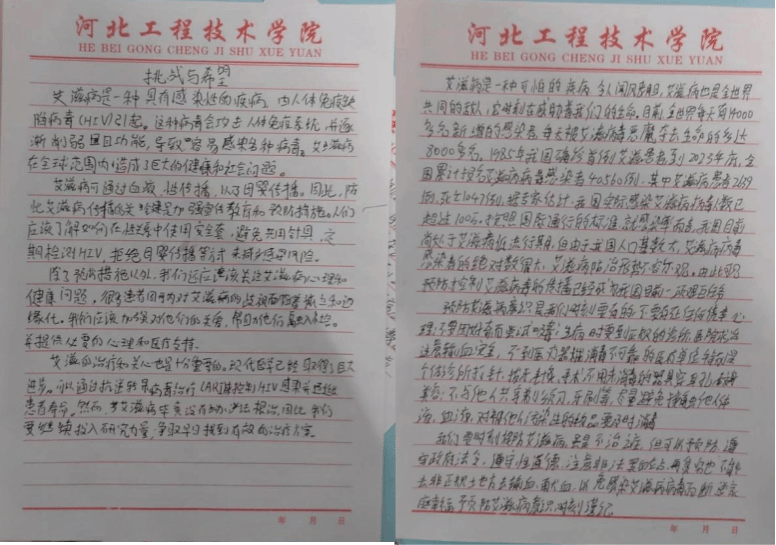 河北工程技术学院
HE BEI GONG CHENG JI SHU XUE YUAN
挑战与希望
艾滋病是一种具有感染性的疾病,由人体免疫缺
陷病毒(HIV)引起。这种病毒会攻击人体免疫系统,并逐
渐削弱其功能,导致容易感染各种病毒。艾滋病
在全球范围内造成了巨大的健康和社会问题。
艾滋病可通过血液、性传播,以及母婴传播。因此,防
止艾滋病传播的关键是加强宣传教育和预防措施。人们
应该了解如何在性爱中使用安全套,避免共用针具,定
期检测HIV,拒绝母婴传播等
除了预防措施以外,我们还应该关注艾滋病心理和
健康问题,很多患者因为对艾滋病的歧视而
缘化。我们应该加强对他们的关爱,帮助他们融入
并提供必要的心理和医疗支持。
艾滋的治疗和关心也是十分重要的。现代医学已经取得了巨大
进步。可以通过抗逆转录病毒治疗(ART)来控制HIV感染
患者寿命。然而,艾滋病毕竟没有办法根治,因此我们
要继续投入研究力量,争取早日找到有效的治疗方案。
年 月 日
河北工程技术学院
HE BEI GONG CHENG JI SHU XUE YUAN
艾滋病是一种可怕的疾病,令人闻风丧胆,艾滋病也是全世界
共同的敌人,它时刻在威胁着我们的生命。目前全世界每天有14000
多名新增的感染者,每天被艾滋病恶魔夺去生命的多达
8000多名。1985年我国确诊首例艾滋患者到2023年底,全
国累计报告艾滋病病毒感染者40560例,其中艾滋病患者2639
例,死亡1047例,据专家估计,我国实际感染艾滋病病毒人数已
超过100万。按照国际通行的标准,就感染率而言,我国目前
尚处于艾滋病低流行期,但由于我国人口基数大,艾滋病病毒
感染者的绝对数很大,艾滋病防治形势
预防控制艾滋病毒的传播已经成为我国目前一项艰巨任务
预防艾滋病意识是我们时刻要有的,不要存在侥幸心
理,不要因好奇而去尝试吸毒,生病时要到正规的诊所、医院
注意输血安全,不到医疗器械消毒不可靠的医疗单位特别是
个体诊所打针、拔牙、针灸、手术。不用未消毒的器具穿耳孔
美容;不与他人共享剃须刀、牙刷等,尽量避免接触他人体
液、血液,对被他人污染过的物品要及时消毒
我们要时刻预防艾滋病,虽是不治之症,但可以预防,遵
守政府法令,遵守性道德,注意非法采血站点
去非正规土地方去输血、献血,以免感染艾滋病病毒而断送家
庭幸福,预防艾滋病意识时刻谨记
年 月 日